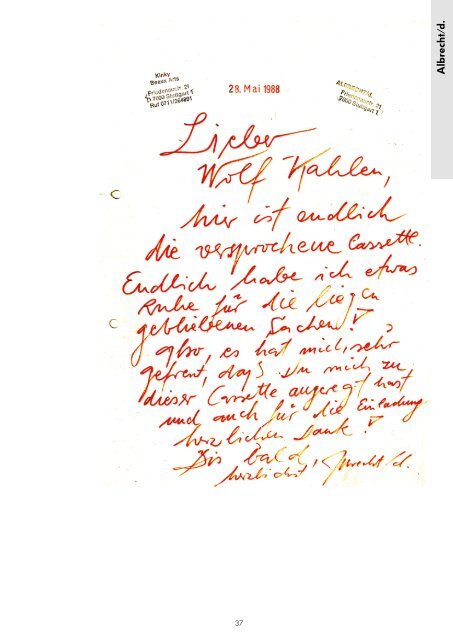 Albrecht/d.
Kinky
Beaux Arts
Friedensstr. 21
D 7000 Stuttgart 1
Ruf 0711/264891
28. Mai 1988
ALBRECHT/D.
Friedensstr. 21
7000 Stuttgart 1
Lieber
Wolf Kahlen,
hier ist endlich
die versprochene Cassette.
Endlich habe ich etwas
Ruhe für die liegen
gebliebenen Sachen!
also, es hat mich, sehr
gefreut, daß Du mich zu
dieser Cassette angeregt hast
und auch für die Einladung
herzlichen Dank!
Bis bald
herzlichst, Albrecht/d.
37